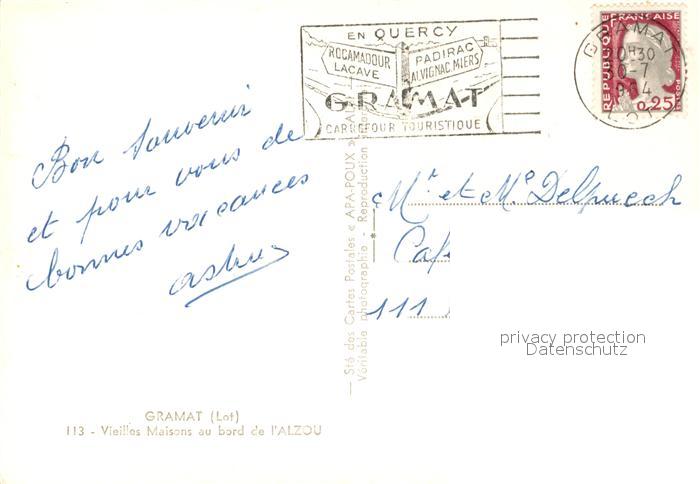 EN QUERCY
ROCAMADOUR
LACAVE
PADIRAC
ALVIGNAC.MIERS
GRAMAT
CARREFOUR TOURISTIQUE
GRAMAT
10H30
-7
1964
LOT
REPUBLIQUE FRANÇAISE
0,25
Bon souvenir
et pour vous de
bonnes vacances
Mr et Me Delpuech
Caf
111
Sté des Cartes Postales « APA-POUX »
Véritable photographie - Reproduction
privacy protection
Datenschutz
GRAMAT (Lot)
113 - Vieilles Maisons au bord de l'ALZOU